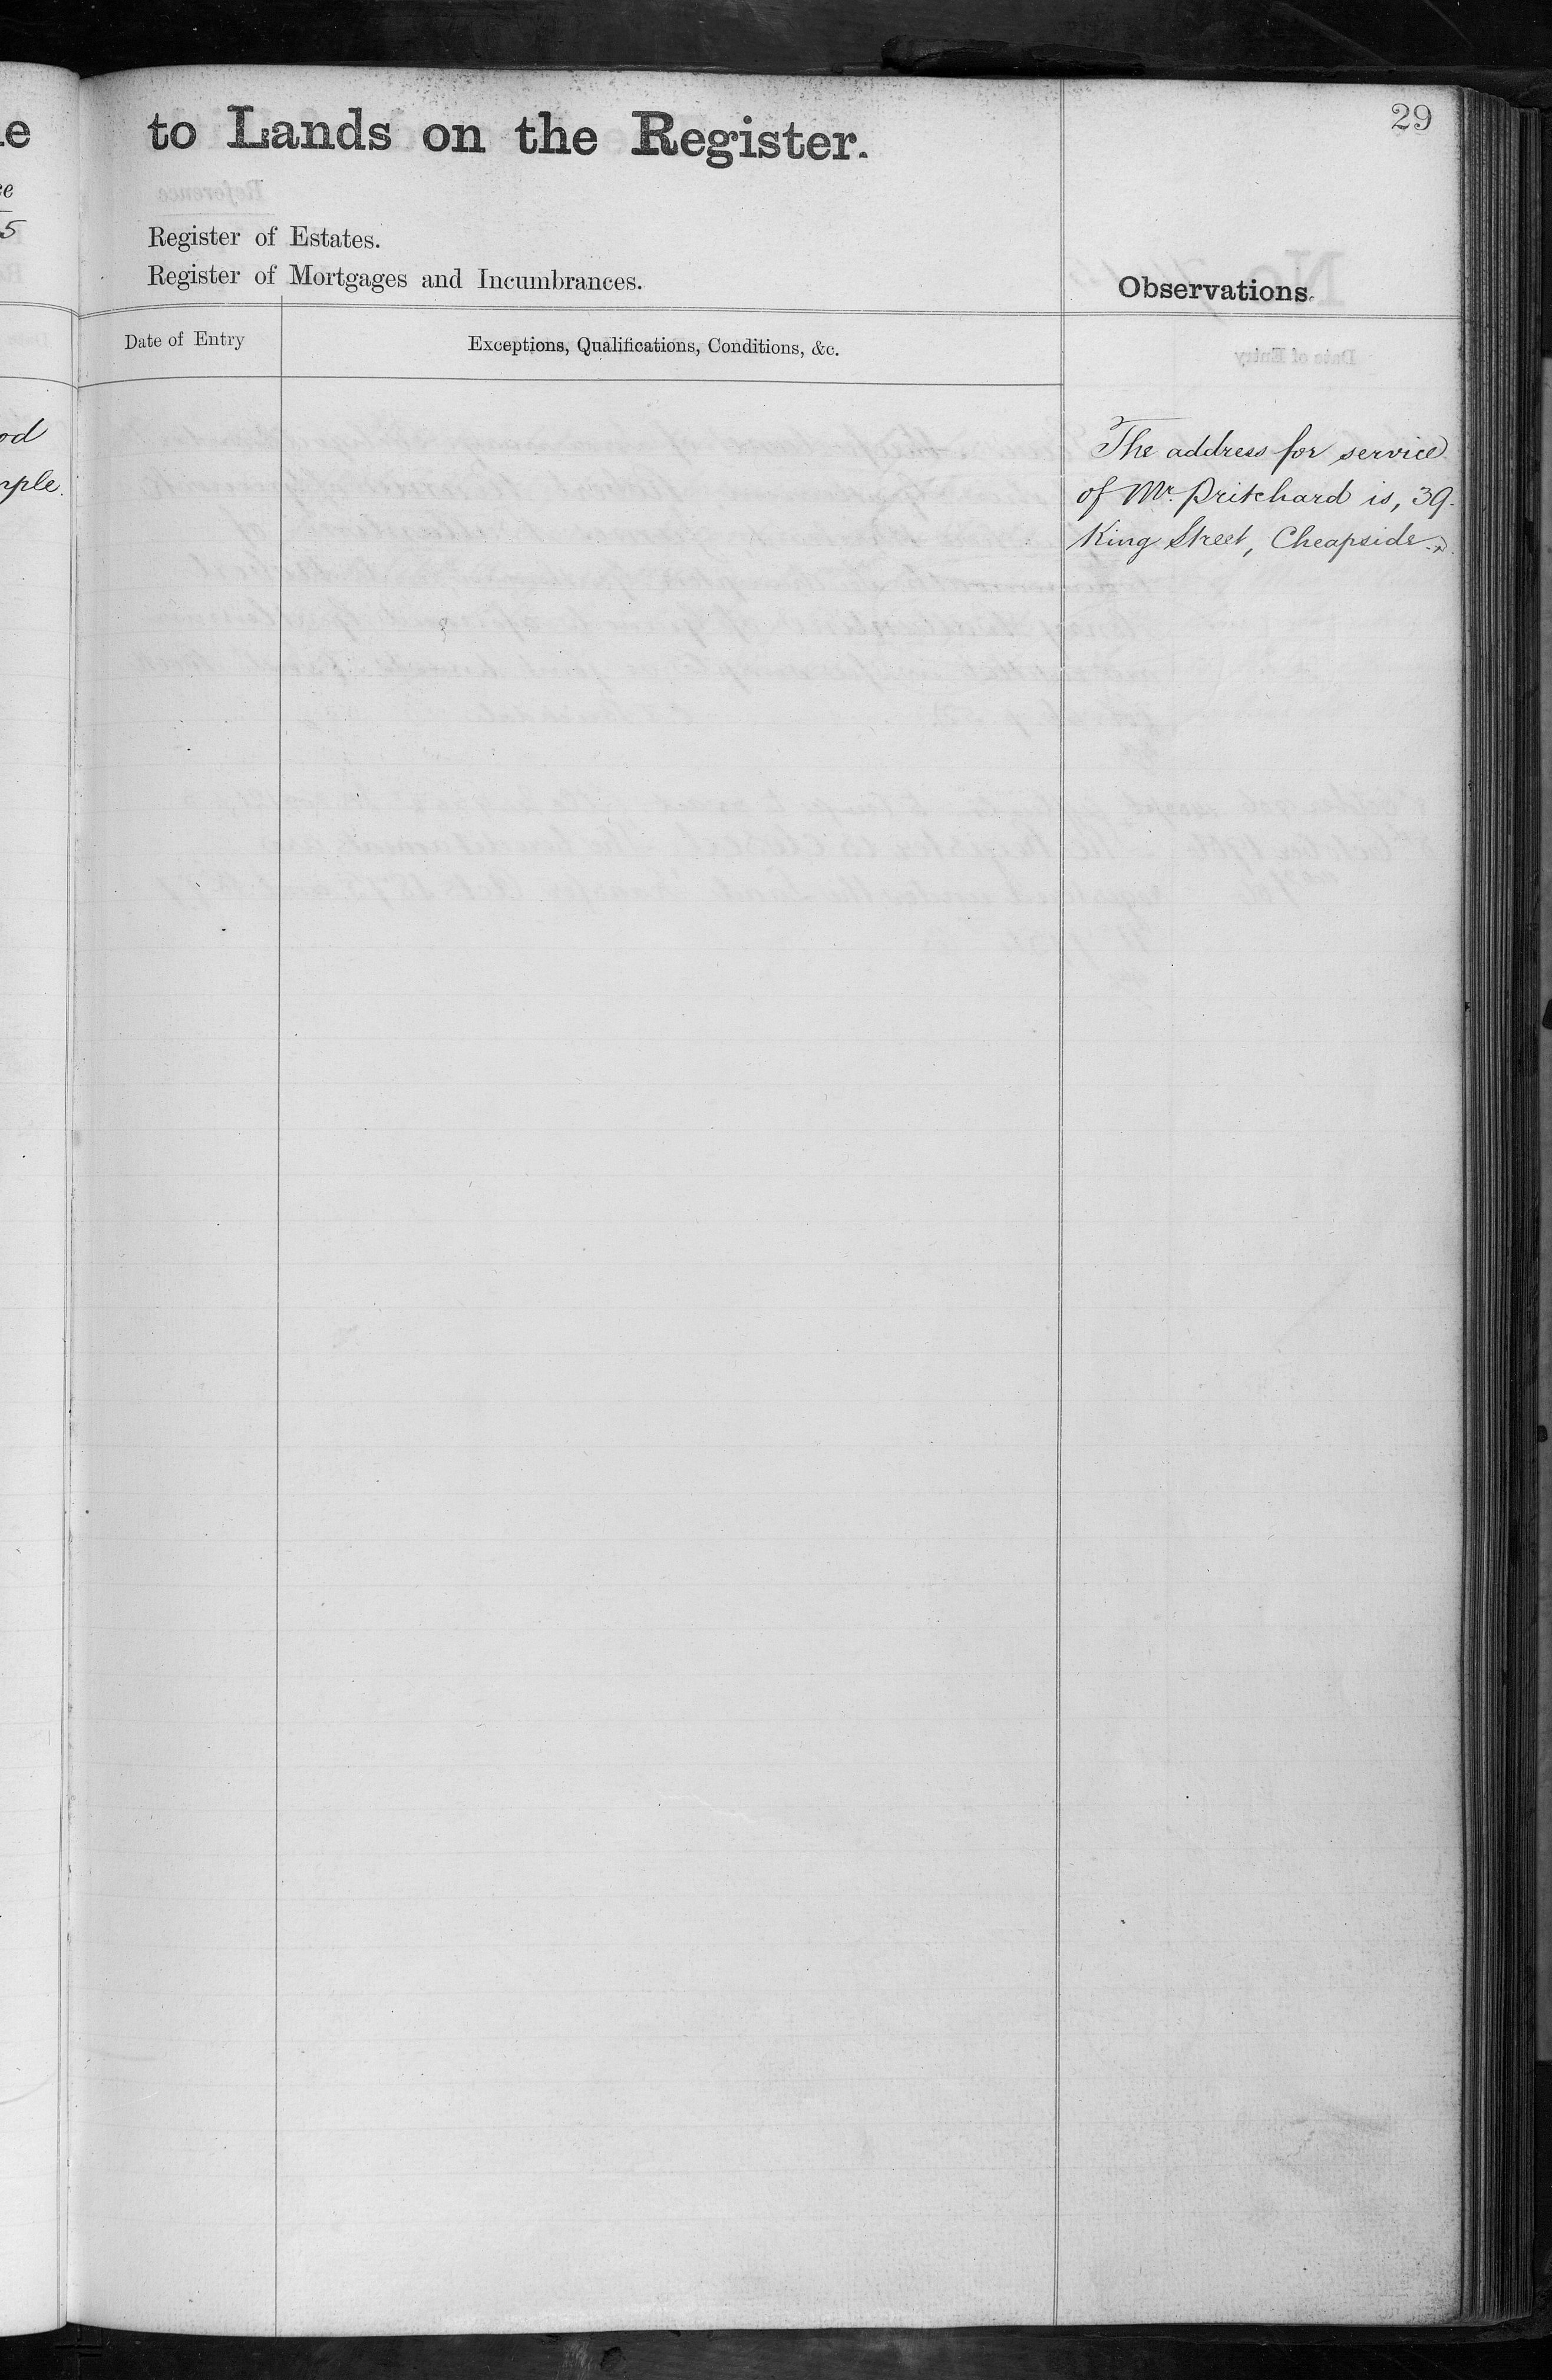 29
to Lands on the Register.
Register of Estates.
Register of Mortgages and Incumbrances.
Observations.
Date of Entry
Exceptions, Qualifications, Conditions, &c.
The address for service
of Mr. Pritchard is, 39.
King Street, Cheapside.